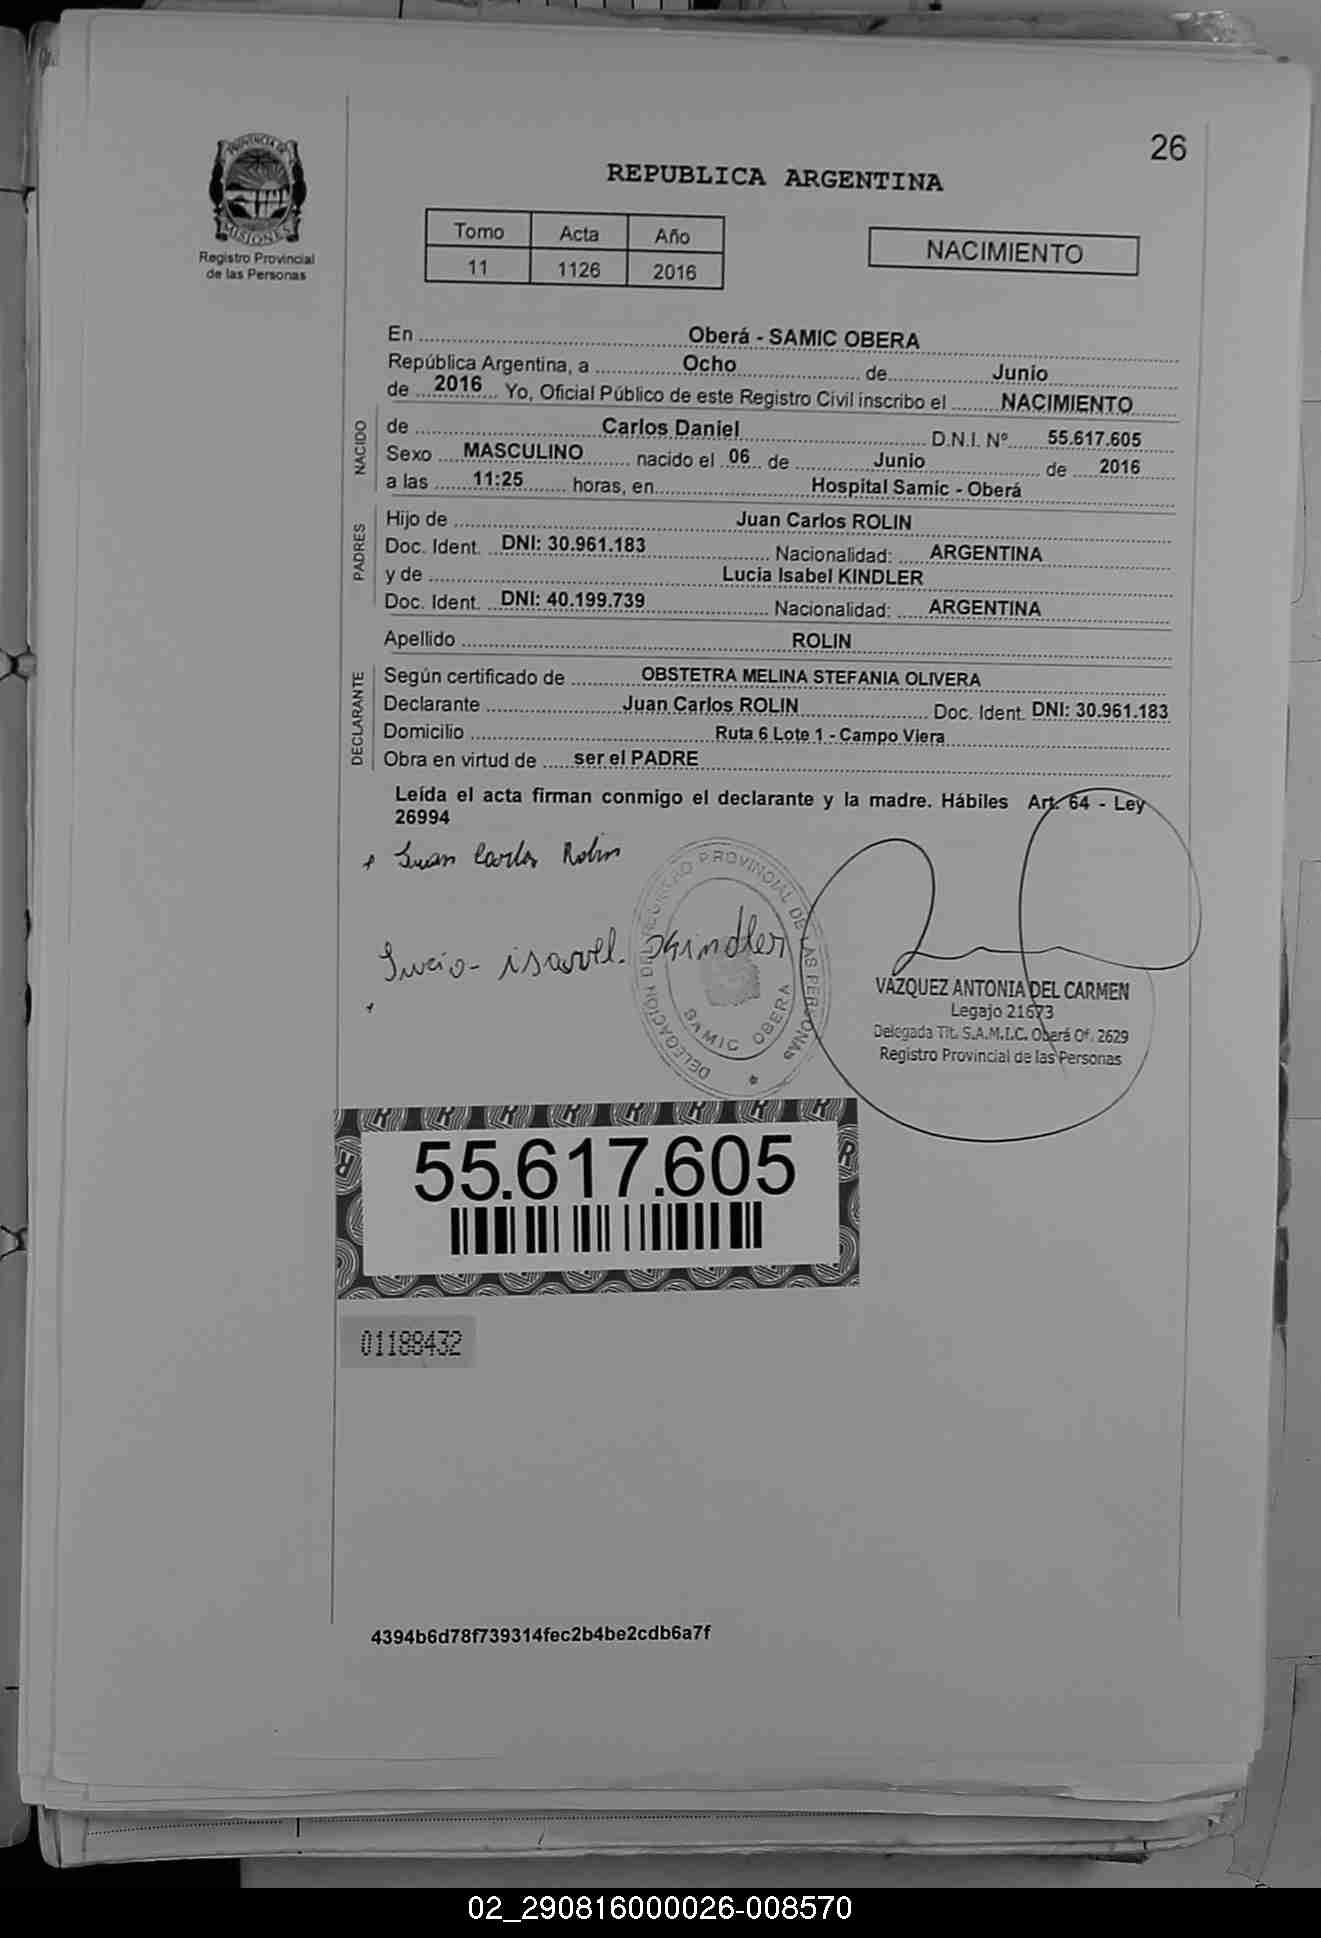 26
PROVINCIA DE
MISIONES
Registro Provincial
de las Personas
REPUBLICA ARGENTINA
Tomo Acta Año
11 1126 2016
NACIMIENTO
En Oberá - SAMIC OBERA
República Argentina, a Ocho de Junio
de 2016 Yo, Oficial Público de este Registro Civil inscribo el NACIMIENTO
NACIDO
de Carlos Daniel D.N.I. Nº 55.617.605
Sexo MASCULINO nacido el 06 de Junio de 2016
a las 11:25 horas, en Hospital Samic - Oberá
PADRES
Hijo de Juan Carlos ROLIN
Doc. Ident. DNI: 30.961.183 Nacionalidad: ARGENTINA
y de Lucia Isabel KINDLER
Doc. Ident. DNI: 40.199.739 Nacionalidad: ARGENTINA
Apellido ROLIN
DECLARANTE
Según certificado de OBSTETRA MELINA STEFANIA OLIVERA
Declarante Juan Carlos ROLIN Doc. Ident. DNI: 30.961.183
Domicilio Ruta 6 Lote 1 - Campo Viera
Obra en virtud de ser el PADRE
Leída el acta firman conmigo el declarante y la madre. Hábiles Art. 64 - Ley
26994
Juan Carlos Rolin
DELEGACIÓN DEL REGISTRO PROVINCIAL DE LAS PERSONAS
SAMIC OBERA
VAZQUEZ ANTONIA DEL CARMEN
Legajo 21673
Delegada Tit. S.A.M.I.C. Oberá Of. 2629
Registro Provincial de las Personas
55.617.605
01188432
4394b6d78f739314fec2b4be2cdb6a7f
02_290816000026-008570